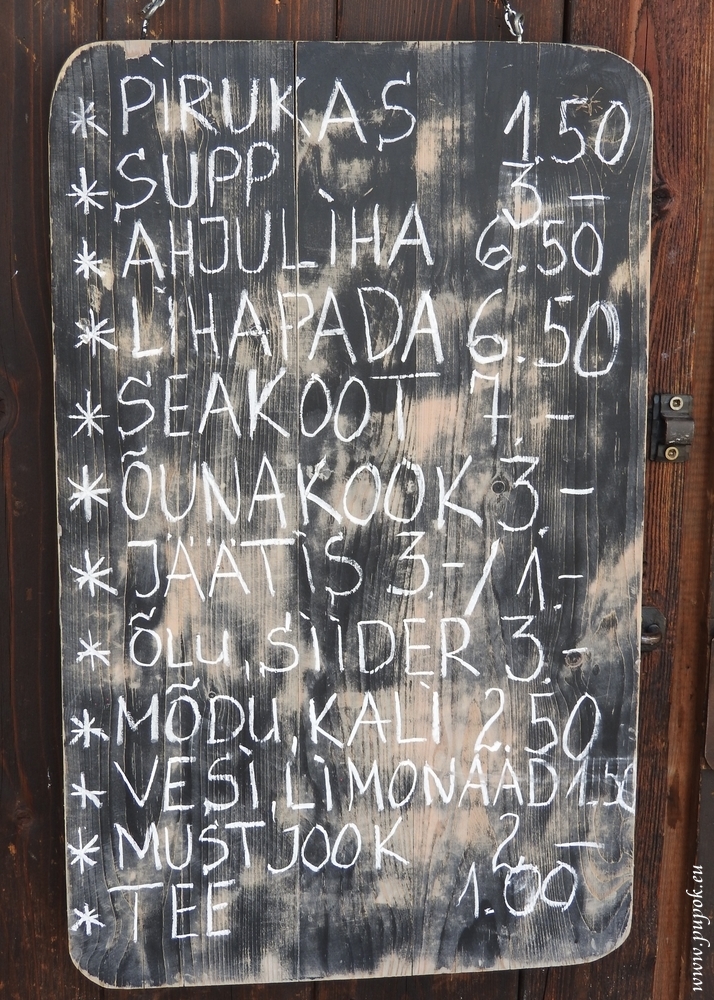 * PIRUKAS 1.50
* SUPP 3.–
* AHJULIHA 6.50
* LIHAPADA 6.50
* SEAKOOT 7.–
* ÕUNAKOOK 3.–
* JÄÄTIS 3.–/1.–
* ÕLU, SIIDER 3.–
* MÕDU, KALI 2.50
* VESI, LIMONAAD 1.50
* MUST JOOK 2.–
* TEE 1.00
www.pupok.eu